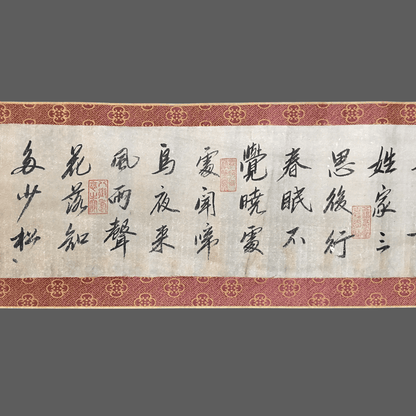 姓家三
思後行
春眠不
覺曉處
處聞啼
鳥夜来
風雨聲
花落知
多少松